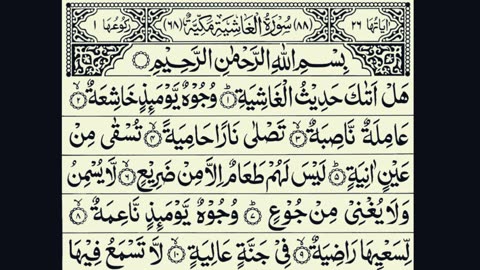 اٰیَاتُهَا ٢٦ (٨٨) سُوْرَةُ الْغَاشِيَةِ مَكِّيَّةٌ (٦٨) رُكُوْعُهَا ١
بِسْمِ اللهِ الرَّحْمٰنِ الرَّحِيْمِ
هَلْ اَتٰىكَ حَدِيْثُ الْغَاشِيَةِ ۝١ وُجُوْهٌ يَّوْمَىِٕذٍ خَاشِعَةٌ ۝٢
عَامِلَةٌ نَّاصِبَةٌ ۝٣ تَصْلٰى نَارًا حَامِيَةً ۝٤ تُسْقٰى مِنْ
عَيْنٍ اٰنِيَةٍ ۝٥ لَيْسَ لَهُمْ طَعَامٌ اِلَّا مِنْ ضَرِيْعٍ ۝٦ لَّا يُسْمِنُ
وَلَا يُغْنِىْ مِنْ جُوْعٍ ۝٧ وُجُوْهٌ يَّوْمَىِٕذٍ نَّاعِمَةٌ ۝٨
لِّسَعْيِهَا رَاضِيَةٌ ۝٩ فِىْ جَنَّةٍ عَالِيَةٍ ۝١٠ لَّا تَسْمَعُ فِيْهَا